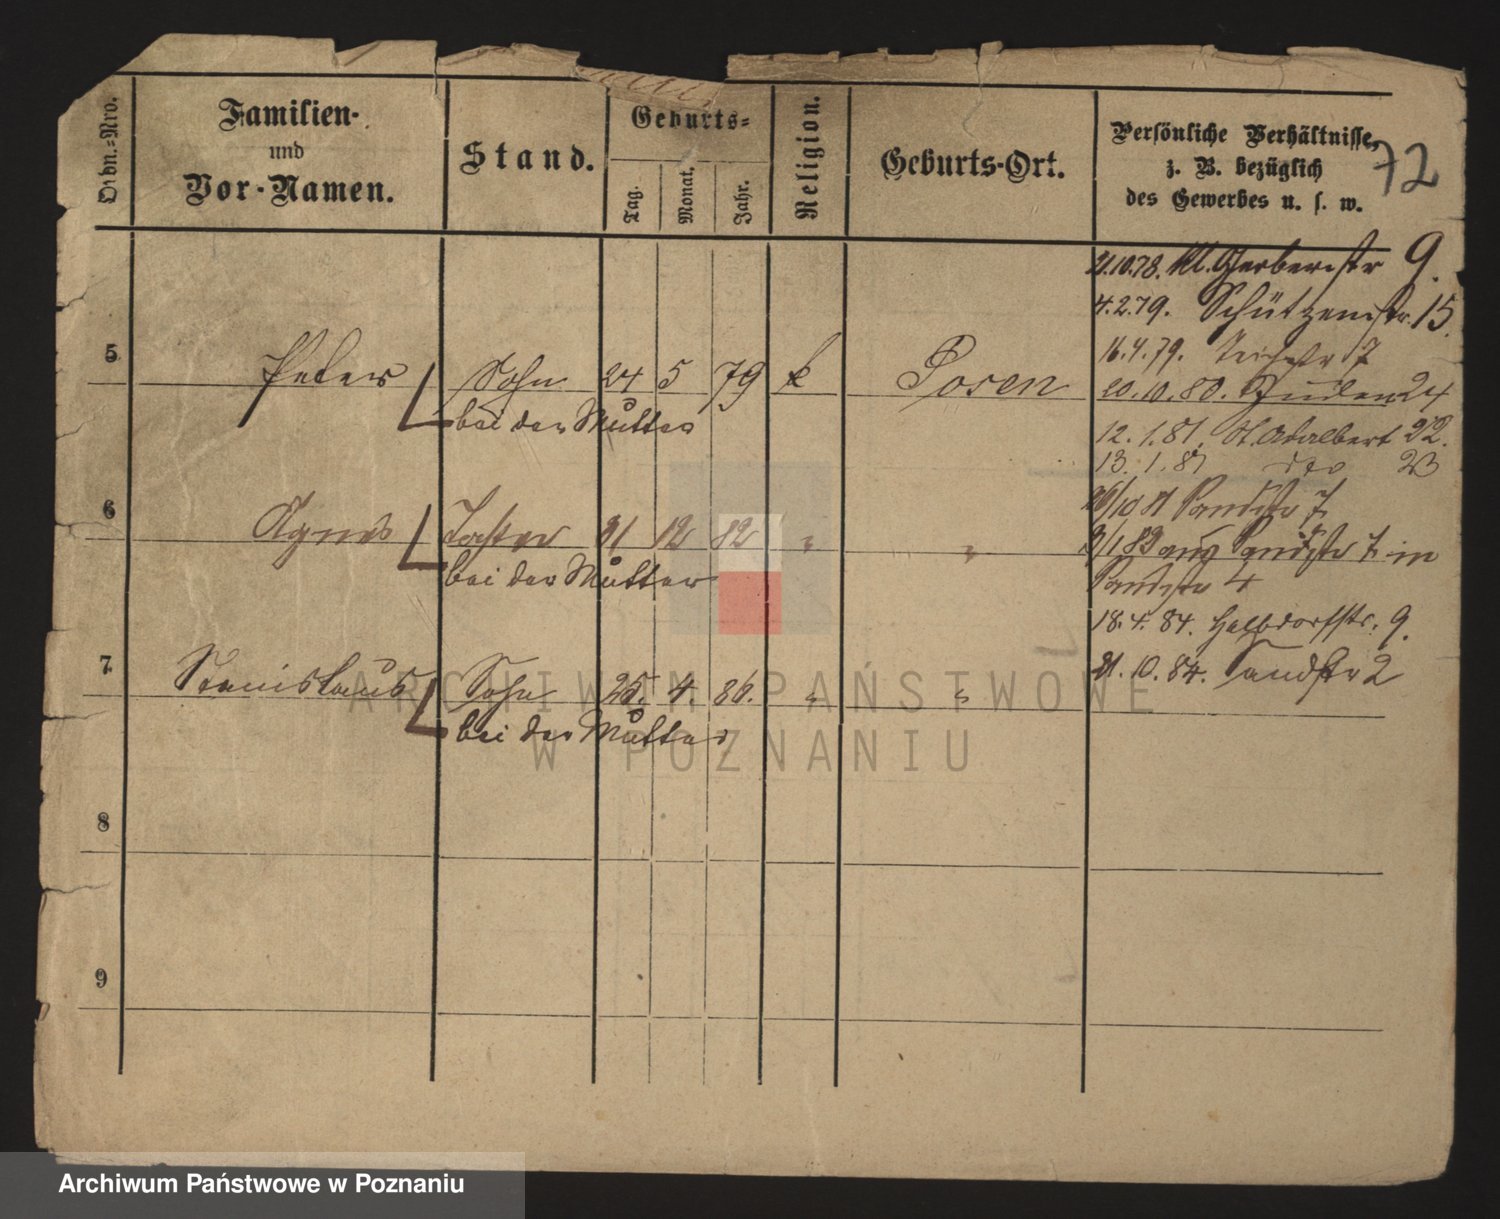 Ordn.-Nro.
Familien- und Vor-Namen.
Stand.
Geburts-
Tag.
Monat.
Jahr.
Religion.
Geburts-Ort.
Persönliche Verhältnisse,
z. B. bezüglich
des Gewerbes u. s. w.
72
21.10.78. Kl. Gerberstr 9.
4.2.79. Schützenstr. 15.
5 Peter Sohn 24 5 79 k Posen
bei der Mutter
16.4.79. Teichstr 7
20.10.80. 24
12.1.81. St. Adalbert 22.
13.1.81 dto 23
6 Agnes Tochter 31 12 82 " "
bei der Mutter
26/10 81 Sandstr 7
3/1 83 aus Sandstr 7 in
Sandstr 4
18.4.84. Halbdorfstr. 9.
7 Stanislaus Sohn 25. 4. 86. " "
bei der Mutter
21.10.84. Sandstr 2
8
9
ARCHIWUM PAŃSTWOWE
W POZNANIU
Archiwum Państwowe w Poznaniu